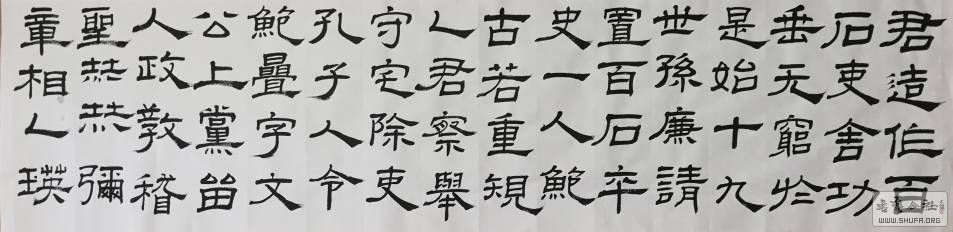 君造作百
石吏舍功
垂无窮於
是始十九
世孫廉請
置百石卒
史一人鮑
古若重規
乙君察舉
守宅除吏
孔子人令
鮑疊字文
公上黨畄
人政敎稽
聖赫赫彌
章相乙瑛
WWW.SHUFA.ORG